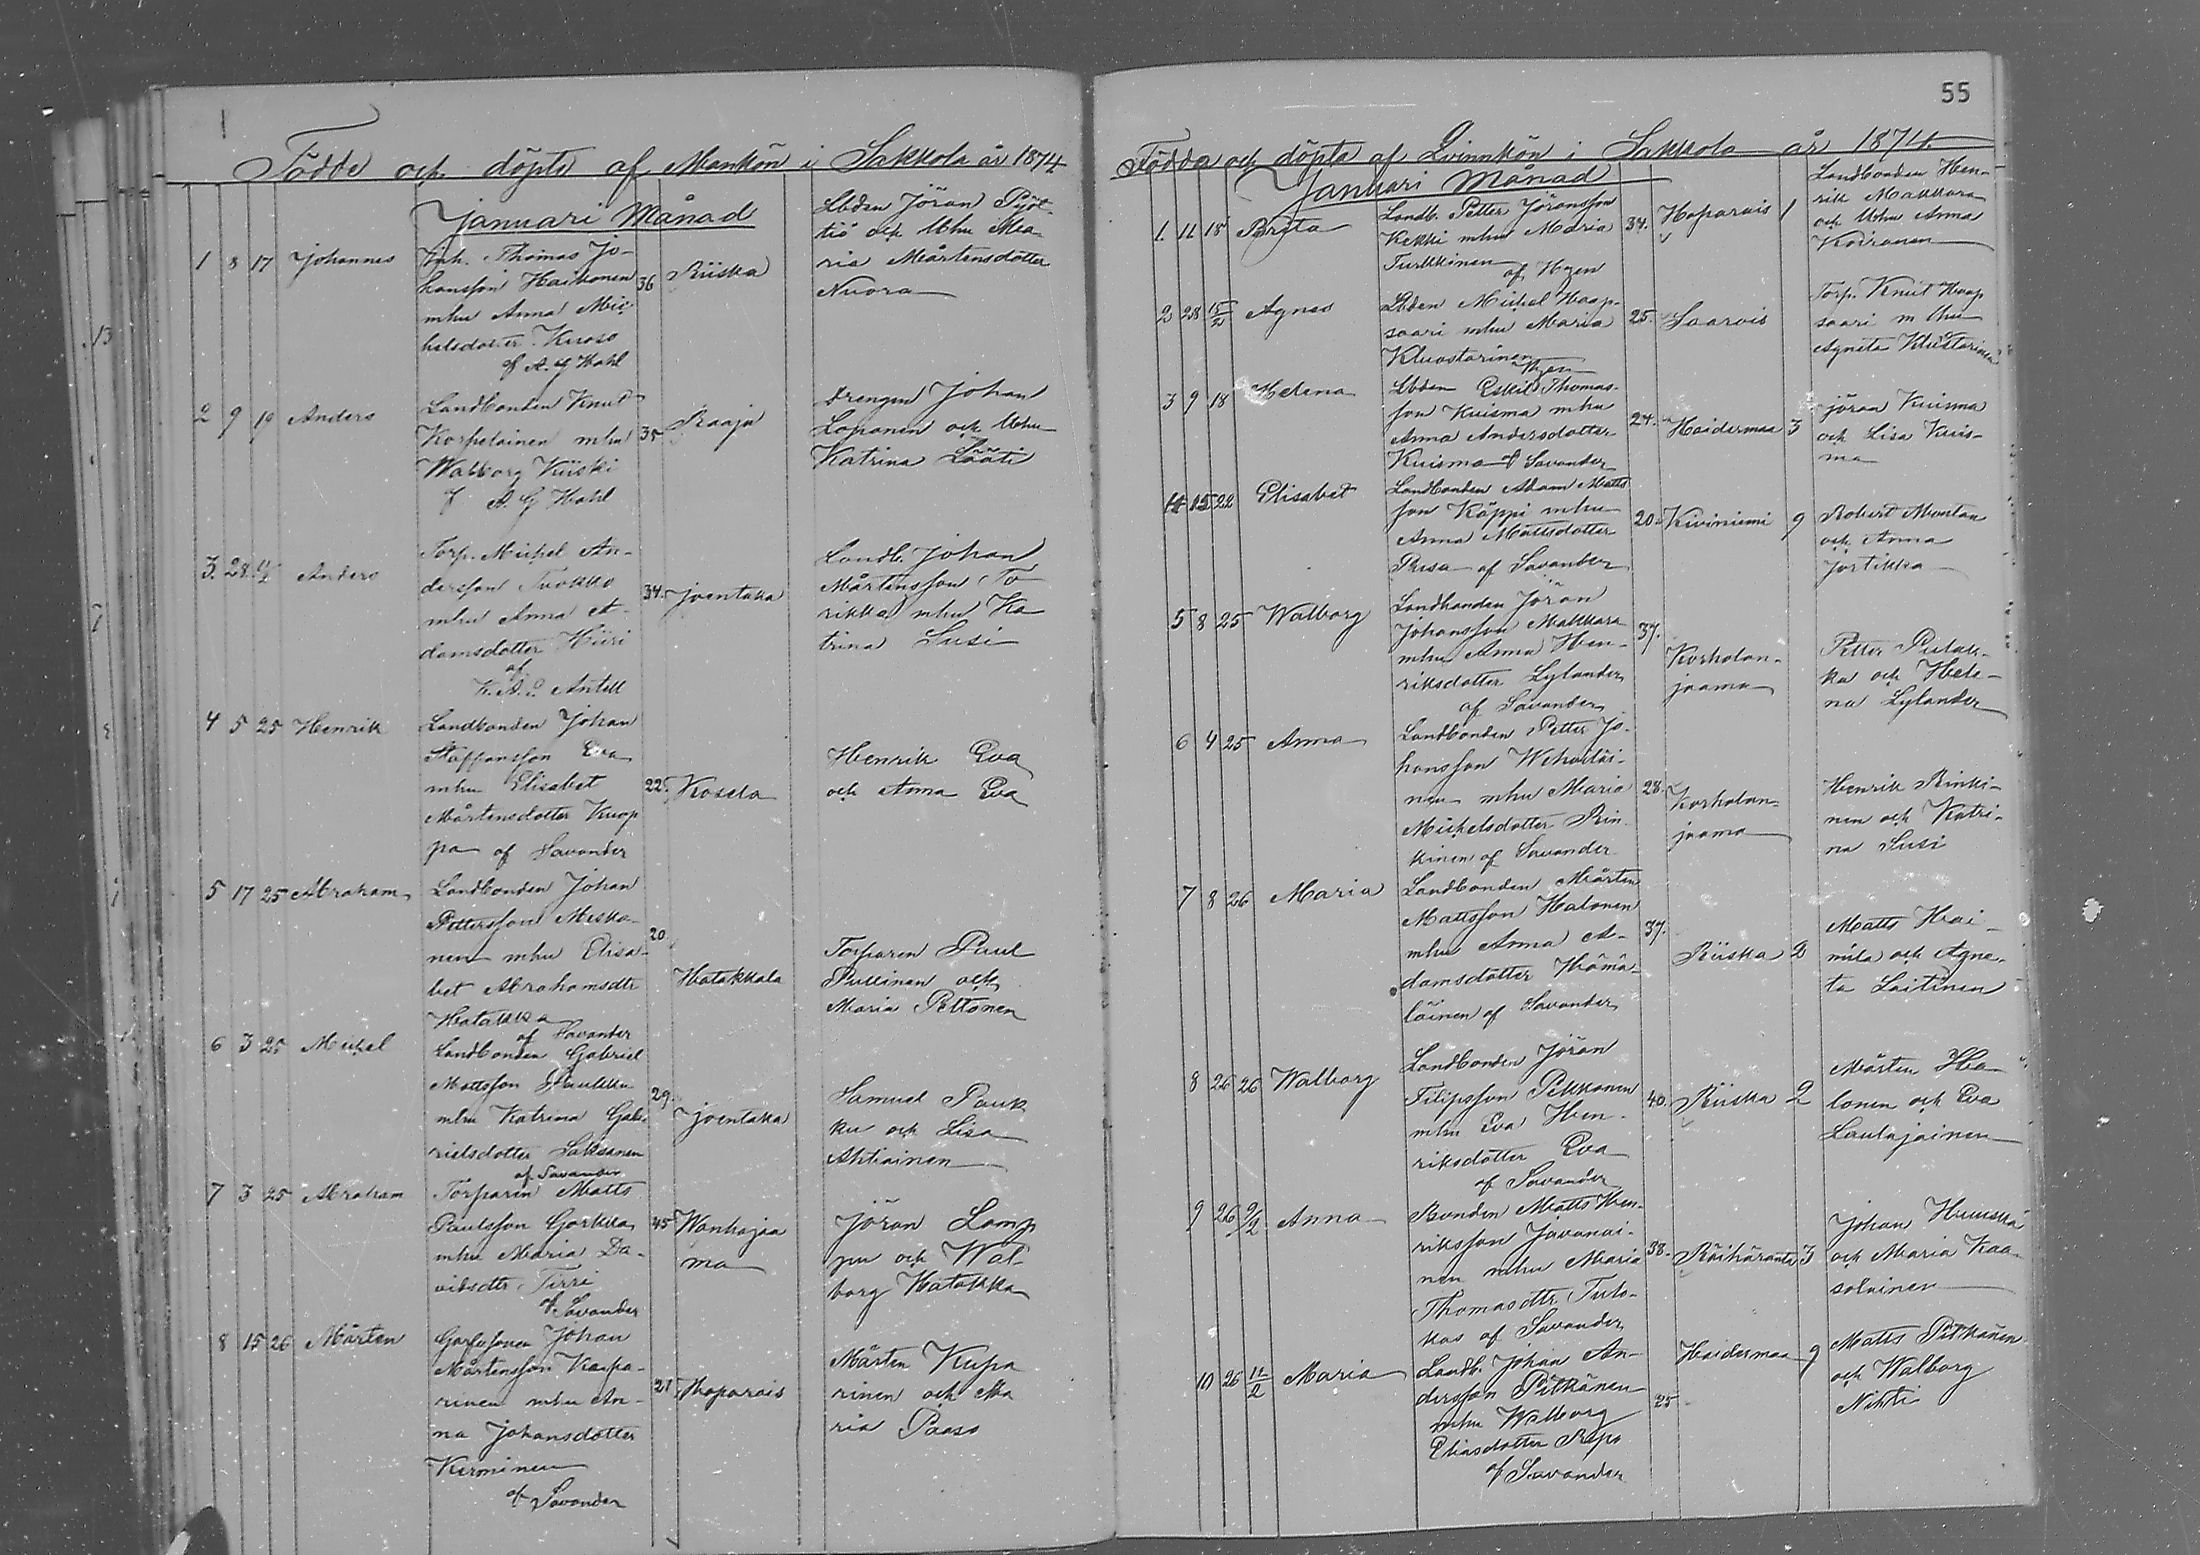 55
Födde och döpte af Mankön i Sakkola år 1874
Januari Månad
1 8 17 Johannes
Inh. Thomas Jo-
hansson Haikonen
mhu Anna Mic-
helsdotter Kuoso
af A. G Hahl
36 Riiska
Lbden Jöran Pyöt-
tiö och Uhu Ma-
ria Mårtensdotter
Nuora
2 9 19 Anders
Landbonden Knut
Korpelainen mhu
Walborg Kiiski
af A. G Hahl
35 Raaju
drengen Johan
Loponen och Uhu
Katrina Lääti
3. 28. Anders
Torp. Michel An-
dersson Tuokko
mhu Anna A-
damsdotter Hiiri
af
K. A. E. Antell
34. Joentaka
Landb. Johan
Mårtensson To-
rikka mhu Ka
trina Susi
4 5 25 Henrik
Landbonden Johan
Staffansson Eva
mhu Elisabet
Mårtensdotter Knop
pa af Savander
22. Kosela
Henrik Eva
och Anna Eva
5 17 25 Abraham
Landbonden Johan
Pettersson Miska-
nen mhu Elisa-
bet Abrahamsdtr
Hatakka
af Savander
20
Hatakkala
Torparen Paul
Pullinen och
Maria Pettonen
6 3 25 Michel
Landbonden Gabriel
Mattsson Paukku
mhu Katrina Gab-
rielsdotter Saksanen
af Savander
29.
Joentaka
Samuel Pauk
ku och Lisa
Ahtiainen
7 3 25 Abraham
Torparen Matts
Paulsson Gorkka
mhu Maria Da-
vidsdtr. Tirri
af Savander
45 Wanhajaa
ma
Jöran Lamp
pu och Wal-
borg Hatakka
8 15 26 Mårten
Johan
Mårtensson Kaspa-
rinen mhu An-
na Johansdotter
Kirminen
af Savander
27. Haparais
Mårten Kupa
rinen och Ma
ria Paaso
Födda och döpta af Qvinnkön i Sakkola år 1874
Januari Månad
1. 11 18 Brita
Landb. Petter Jöransson
Kekki mhu Maria
Turkkinen
af Hgen
34. Haparais 1
Landbonden Hen-
rik Makkara
och Uhu Anna
Koironen
2 28 15/2 Agnes
Lbden Michel Haap-
saari mhu Maria
Kluostarinen
af Hgen
25. Saarois
Torp. Knut Haap
saari mhu
Agneta Klustarinen
3 9 18 Helena
Lbden Eskil Thomas-
son Kuisma mhu
Anna Andersdotter
Kuisma af Savander
24. Haidermaa 3
Jöran Kuisma
och Lisa Kuis-
ma
4 15 22 Elisabet
Landbonden Adam Matts
son Käppi mhu
Anna Mattsdotter
Prisa af Savander
20. Kiviniemi 9
Robert Montan
och Anna
Jortikka
5 8 25 Walborg
Landbonden Jöran
Johansson Makkara
mhu Anna Hen-
riksdotter Lylander
af Savander
37. Korholan-
jaama
Petter Pulak-
ka och Hele-
na Lylander
6 4 25 Anna
Landbonden Petter Jo-
hansson Wehviläi-
nen mhu Maria
Michelsdotter Rin-
kinen af Savander
28. Korholan-
jaama
Henrik Rinki-
nen och Katri-
na Susi
7 8 26 Maria
Landbonden Mårten
Mattsson Halonen
mhu Anna A-
damsdotter Hämä-
läinen af Savander
37.
Riiska 2
Matts Hai-
mila och Agne-
ta Laitinen
8 26 26 Walborg
Landbonden Jöran
Filipsson Pekkanen
mhu Eva Hen-
riksdotter Eva
af Savander
40. Riiska 2
Mårten Ha-
lonen och Eva
Laulajainen
9 26 9/2 Anna
Bonden Matts Hen-
riksson Javanai-
nen mhu Maria
Thomasdtr. Tulo-
kas af Savander
38. Räihäranta 3
Johan Huuska
och Maria Kaa-
solainen
10 26 12/2 Maria
Landb. Johan An-
dersson Pitkänen
mhu Walborg
Eliasdotter Repo
af Savander
25 Haidermaa 9
Matts Pitkänen
och Walborg
Nihti